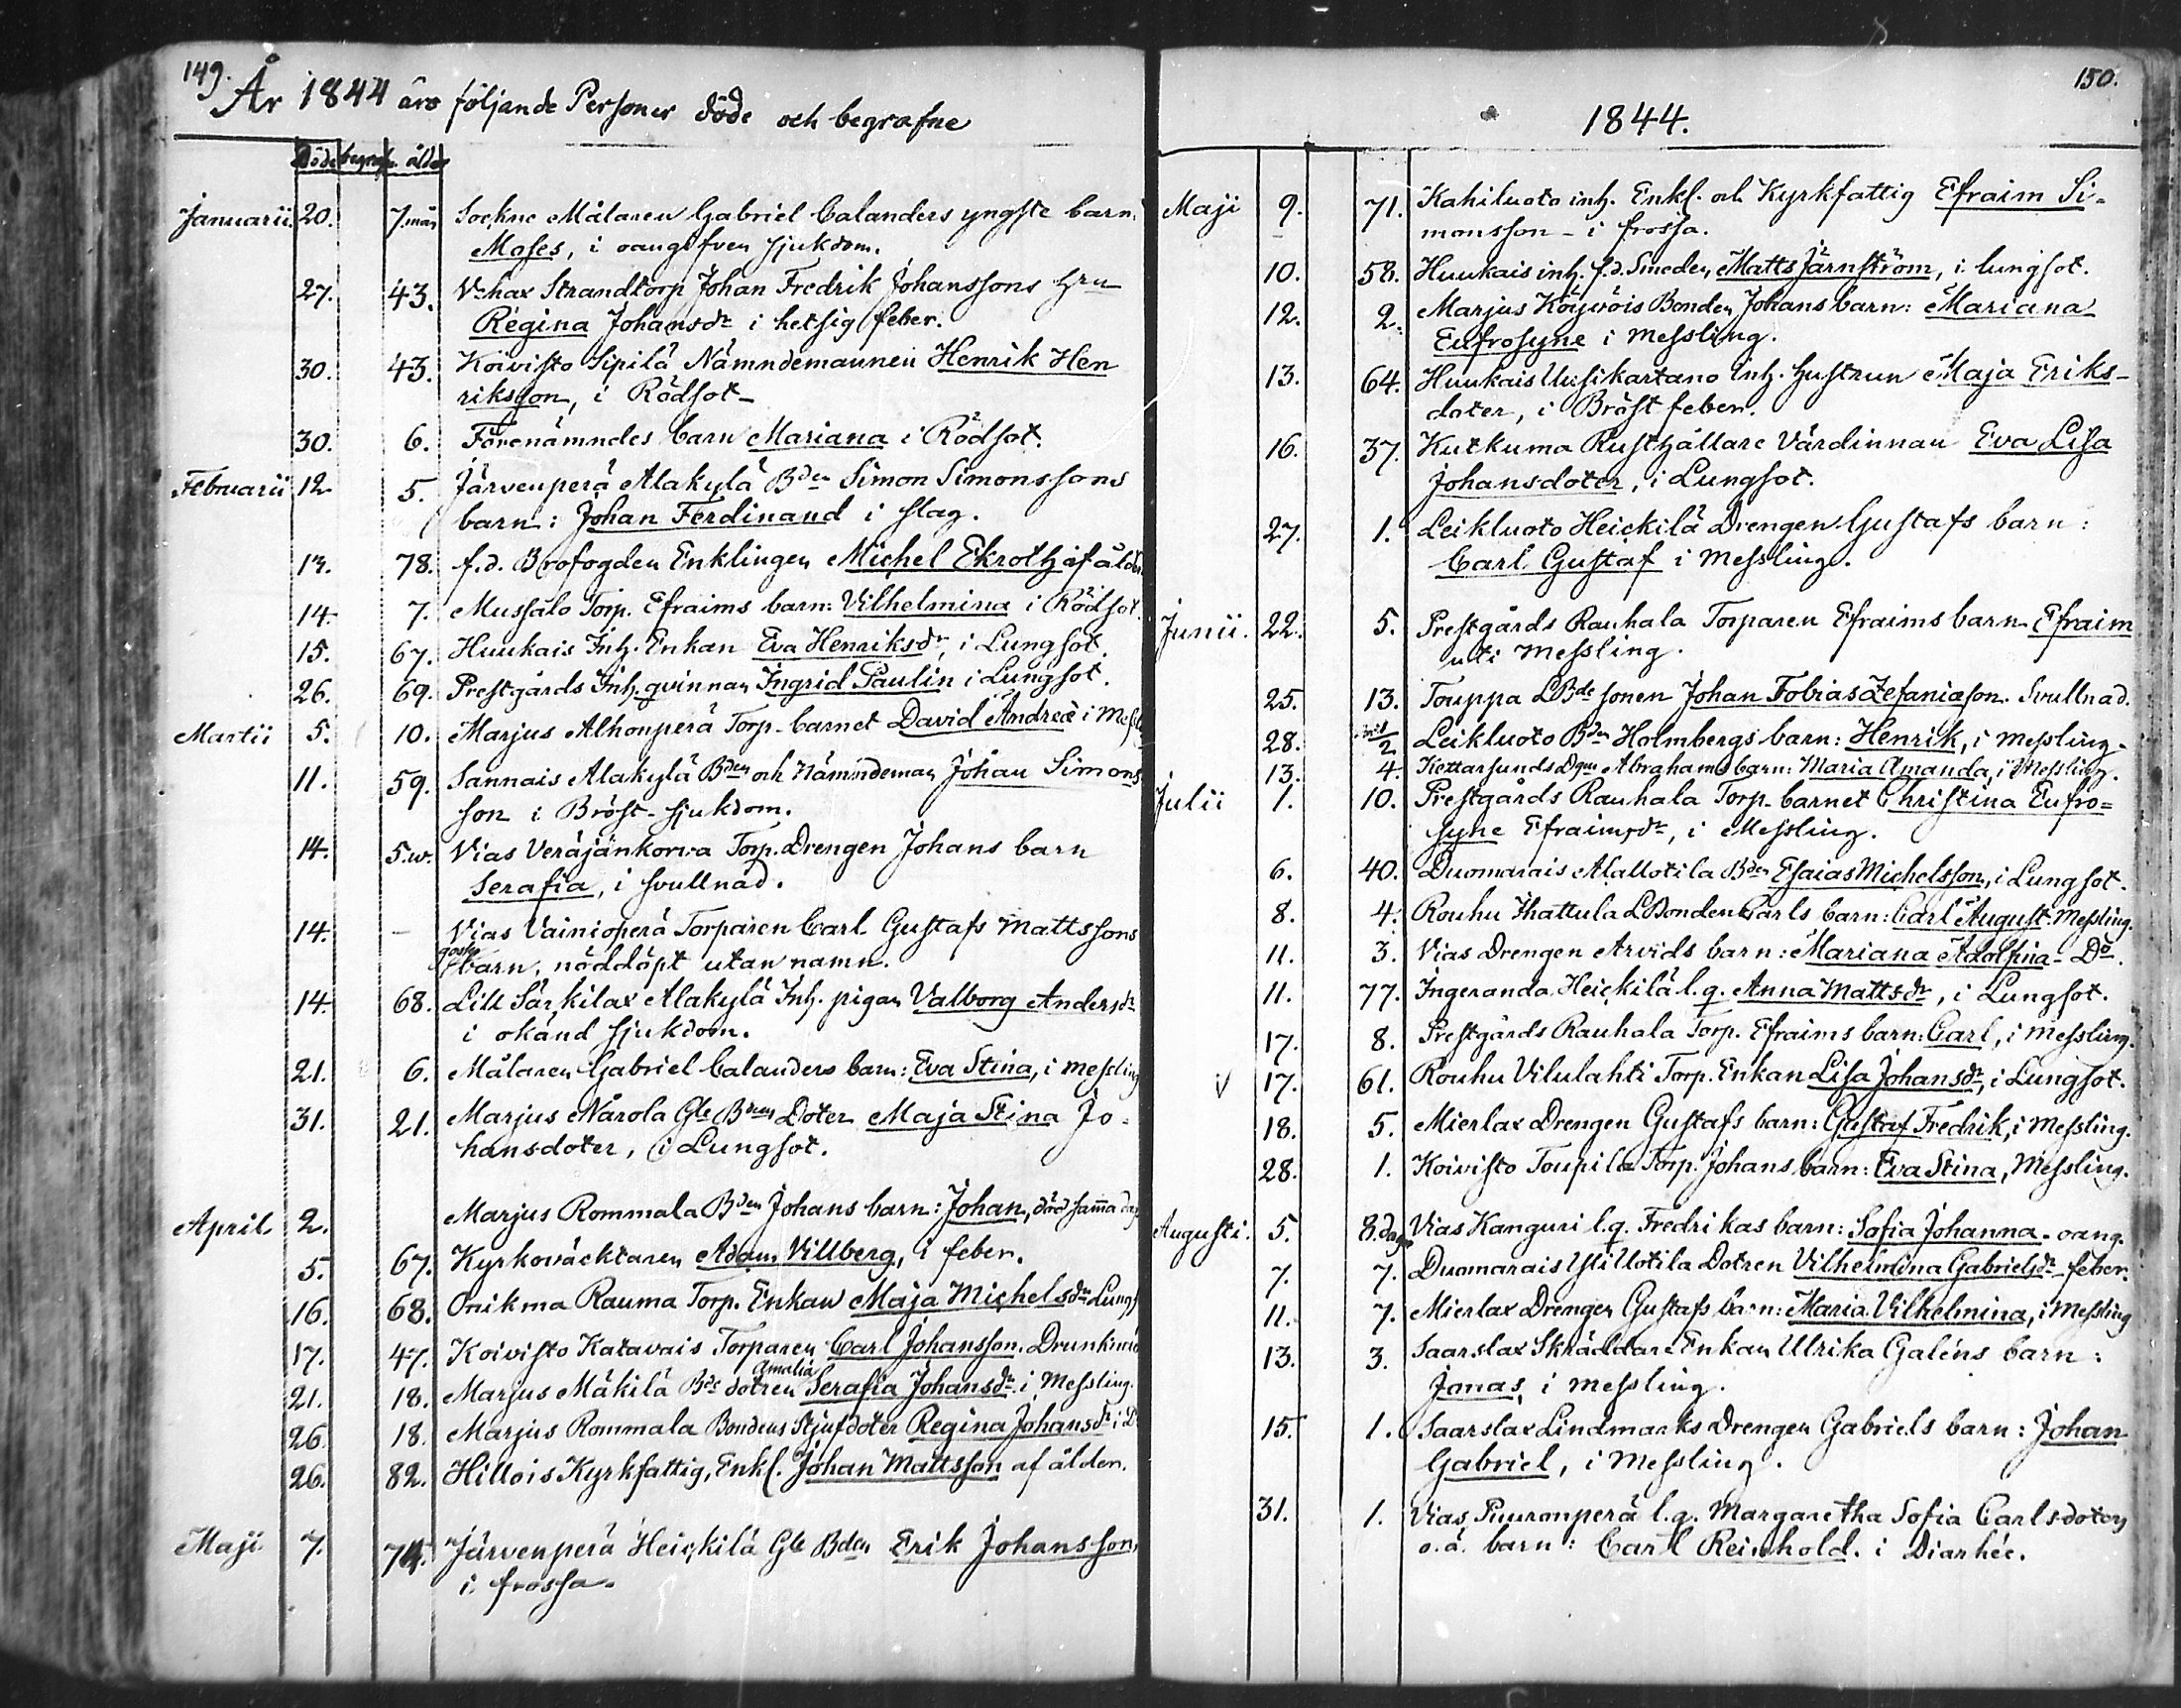 149.
År 1844 äro följande Personer döde och begrafne
Döde begrafn ålder
Januarii. 20. 7. mån Sockne Målaren Gabriel Calanders yngste barn:
Moses, i oangifven sjukdom.
27. 43. Vehax Strandtorp Johan Fredrik Johanssons Hru
Regina Johansdr i hetsig feber.
30. 43. Koivisto Sipilä Nämndemannen Henrik Hen
riksson, i Rödsot
30. 6. Förenämndes barn Mariana i Rödsot.
Februarii 12 5. Järvenperä Alakylä Bden Simon Simonssons
barn: Johan Ferdinand i slag.
13. 78. f.d. Brofogden Enklingen Michel Ekroth af ålder
14. 7. Mussalo Torp. Efraims barn: Vilhelmina i Rödsot.
15. 67. Huukais Inh. Enkan Eva Henriksdr, i Lungsot.
26. 69. Prestgårds Inh. qvinnan Ingrid Paulin i Lungsot.
Martii 5. 10. Marjus Alhonperä Torp. barnet David Andreæ i Messl
11. 59. Sannais Alakylä Bden och Nämndeman Johan Simons
son i Bröst-sjukdom.
14. 5.w. Vias Veräjänkorva Torp. Drengen Johans barn
Serafia, i svullnad.
14. – Vias Vainioperä Torparen Carl Gustafs Mattssons
gosse barn, nöddöpt utan namn.
14. 68. Lill Särkilax Alakylä Inh. pigan Valborg Andersdr
i okänd sjukdom.
21. 6. Målaren Gabriel Calanders barn: Eva Stina, i messling
31. 21. Marjus Nårola Gle Bdens Doter Maja Stina Jo-
hansdoter, i Lungsot.
April 2. Marjus Rommala Bden Johans barn: Johan, död samma dag
5. 67. Kyrkowäcktaren Adam Villberg, i feber.
16. 68. Onikma Rauma Torp. Enkan Maja Michelsdr Lungs
17. 47. Koivisto Katavais Torparen Carl Johansson. Drunknad
21. 18. Marjus Mäkilä Bds dotren Amalia Serafia Johansdr. i Messling.
26 18. Marjus Rommala Bondens Stjufdoter Regina Johansdr i Do
26. 82. Hillois Kyrkfattig, Enkl. Johan Mattsson af ålder.
Maji 7. 74. Järvenperä Heickilä Gle Bden Erik Johansson,
i frossa.
150.
1844.
Maji 9. 71. Kahiluoto inh. Enkl. och Kyrkfattig Efraim Si-
monsson – i frossa.
10. 58. Huukais inh. f.d. Smeden Matts Järnström, i lungsot.
12. 2. Marjus Köijwöis Bonden Johans barn: Mariana
Eufrosyne i Messling.
13. 64. Huukais Uusikartano Inh. hustrun Maja Eriks-
doter, i Bröst feber.
16. 37. Kutkuma Rusthållare Värdinnan Eva Lisa
Johansdoter, i Lungsot.
27. 1. Leikluoto Heickilä Drengen Gustafs barn:
Carl Gustaf i Messling.
Junii. 22. 5. Prestgårds Rauhala Torparen Efraims barn Efraim
uti messling.
25. 13. Touppa LBde sonen Johan Tobias Zefaniæson. Svullnad.
28. 1/2 Leikluoto Bden Holmbergs barn: Henrik, i Messling.
13. 4. Kettarsunds Dgns Abrahams barn: Maria Amanda, i Messling.
Julii 1. 10. Prestgårds Rauhala Torp. barnet Christina Eufro=
syne Efraimsdr, i Messling.
6. 40. Duomarais Alallotila Bden Esaias Michelsson, i Lungsot.
8. 4. Rouhu Ihattula LBonden Carls barn: Carl August. Messling.
11. 3. Vias Drengen Arvids barn: Mariana Adolfina – Do.
11. 77. Ingeranda Heickilä l.q. Anna Mattsdr, i Lungsot.
17. 8. Prestgårds Rauhala Torp. Efraims barn: Carl, i Messling.
V 17. 61. Rouhu Vilulahti Torp. Enkan Lisa Johansdr, i Lungsot.
18. 5. Mierlax Drengen Gustafs barn: Gustaf Fredrik, i Messling.
28. 1. Koivisto Toupila Torp. Johans barn: Eva Stina, Messling.
Augusti. 5. 8. dagar Vias Kanguri l.q. Fredrikas barn: Sofia Johanna. oang.
7. 7. Duomarais Ylillotila Dotren Vilhelmina Gabrielsdr – feber.
11. 7. Mierlax Drengen Gustafs barn: Maria Vilhelmina, i Messling
13. 3. Saarslax Skräddare Enkan Ulrika Galéns barn:
Jonas, i messling.
15. 1. Saarslax Lindmarks Drengen Gabriels barn: Johan
Gabriel, i Messling.
31. 1. Vias Puuronperä l.q. Margaretha Sofia Carlsdoters
o.ä. barn: Carl Reinhold. i Diarhée.